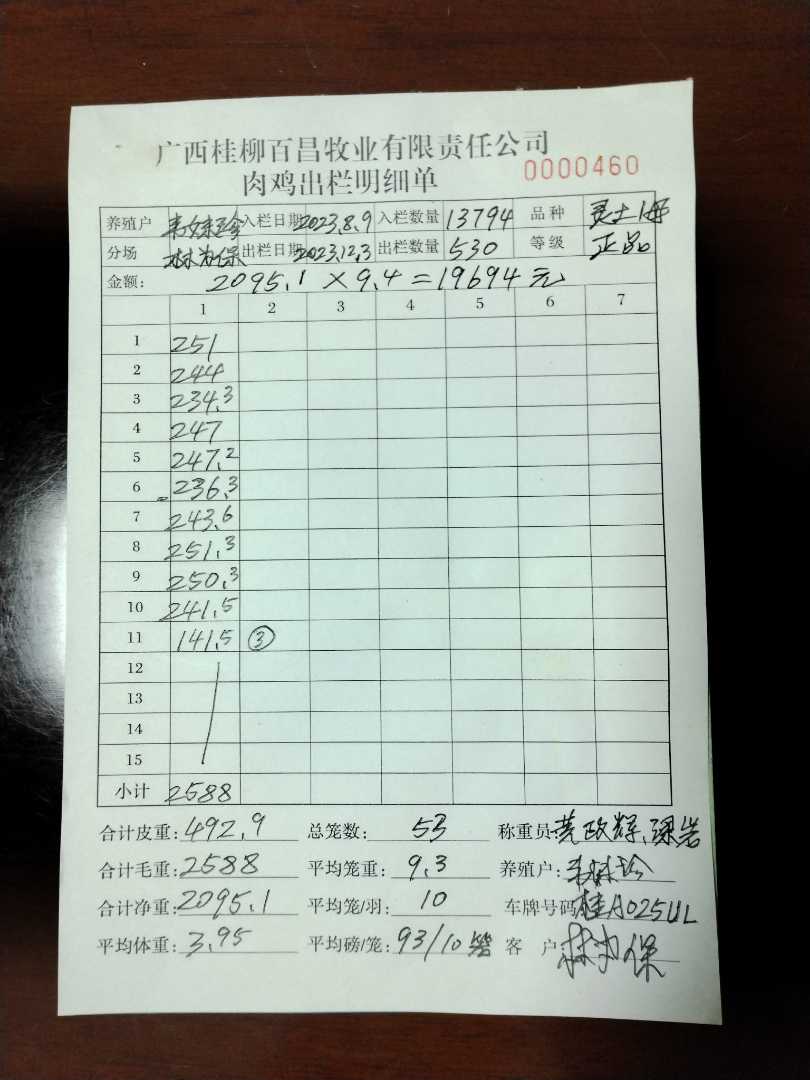 广西桂柳百昌牧业有限责任公司
肉鸡出栏明细单 0000460
养殖户 入栏日期 2023.8.9 入栏数量 13794 品种
分场 林为保 出栏日期 2023.12.3 出栏数量 530 等级 正品
金额: 2095.1 × 9.4 = 19694 元
1 2 3 4 5 6 7
1 251
2 244
3 234.3
4 247
5 247.2
6 236.3
7 243.6
8 251.3
9 250.3
10 241.5
11 141.5 ③
12
13
14
15
小计 2588
合计皮重: 492.9 总笼数: 53 称重员:
合计毛重: 2588 平均笼重: 9.3 养殖户:
合计净重: 2095.1 平均笼/羽: 10 车牌号码 桂A025UL
平均体重: 3.95 平均磅/笼: 93/10 客户: 林为保